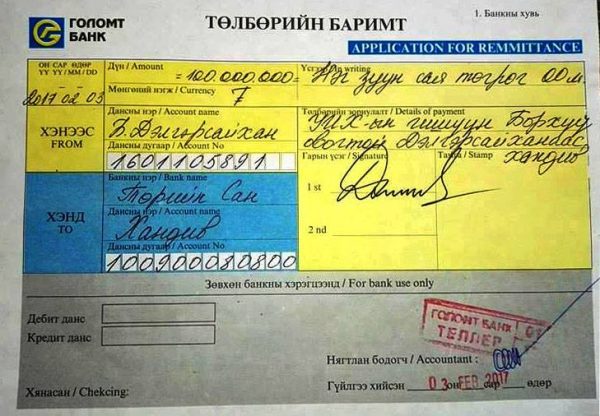 ГОЛОМТ
БАНК
www.golomtbank.com
ТӨЛБӨРИЙН БАРИМТ
1. Банкны хувь
APPLICATION FOR REMMITTANCE
ОН САР ӨДӨР
YY YY / MM / DD
2017 02 03
Дүн / Amount
=100.000.000=
Үсгээр / In writing
Нэг зуун сая төгрөг 00 м.
Мөнгөний нэгж / Currency
₮
ХЭНЭЭС
FROM
Дансны нэр / Account name
Б.Дэлгэрсайхан
Дансны дугаар / Account No
1601105891
Төлбөрийн зориулалт / Details of payment
УИХ-ын гишүүн Борхүү
овогтой Дэлгэрсайханаас
хандив
Гарын үсэг / Signature
Тамга / Stamp
1 st
2 nd
ХЭНД
TO
Банкны нэр / Bank name
Төрийн Сан
Дансны нэр / Account name
Хандив
Дансны дугаар / Account No
100900030800
Зөвхөн банкны хэрэгцээнд / For bank use only
Дебит данс
Кредит данс
ГОЛОМТ БАНК
ТЕЛЛЕР
Нягтлан бодогч / Accountant :
Хянасан / Chekcing:
Гүйлгээ хийсэн он сар өдөр
03 FEB 2017